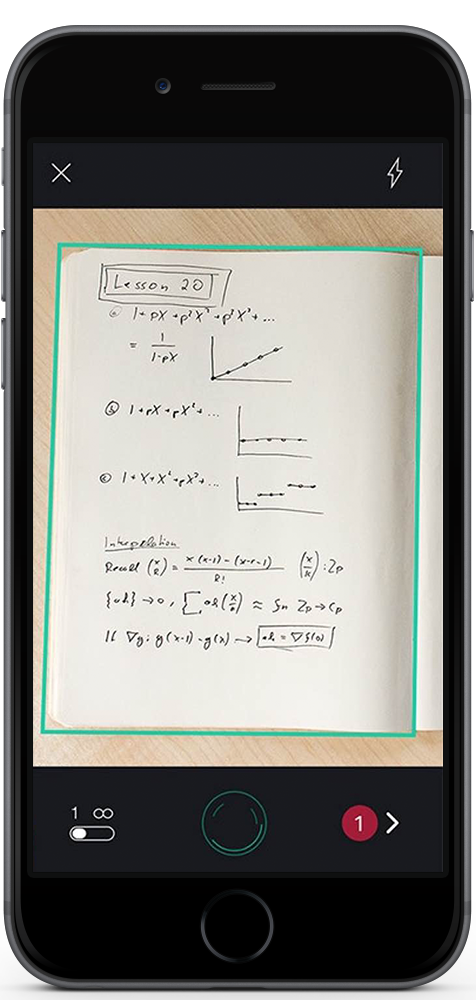 Lesson 20
ⓐ 1+pX+p²X²+p³X³+...
= 1/(1-pX)
ⓑ 1+pX+pX²+...
ⓒ 1+X+X²+pX³+...
Interpolation
Recall (x/k) = x(x-1)-(x-k-1)/k! (x/k): Zp
{ak} → 0, ak(x/k) ≈ Zp → Cp
If ∇g: g(x-1)-g(x) →
1 ∞
1 >